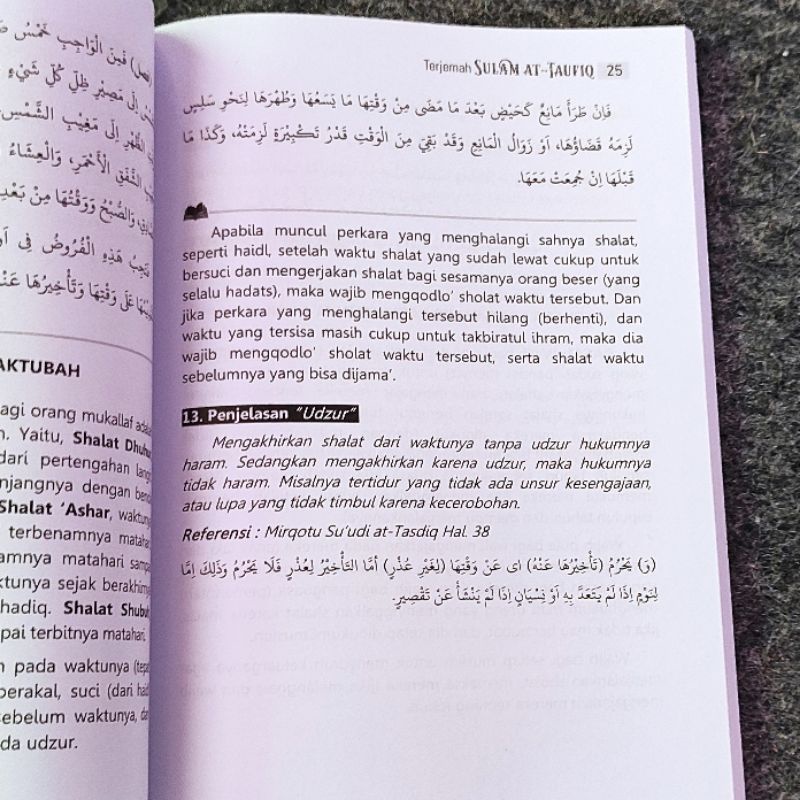 فصل) فَمِنَ الْوَاجِبِ خَمْسُ
إِلَى مَصِيْرِ ظِلِّ كُلِّ شَيْءٍ
الظُّهْرِ إِلَى مَغِيْبِ الشَّمْسِ
الشَّفَقِ الْأَحْمَرِ، وَالْعِشَاءُ
وَالصُّبْحُ وَوَقْتُهَا مِنْ بَعْدِ
تَجِبُ هَذِهِ الْفُرُوْضُ فِى
عَلَى وَقْتِهَا وَتَأْخِيْرُهَا عَنْهُ
AKTUBAH
agi orang mukallaf
n. Yaitu, Shalat Dhuhur
dari pertengahan
njangnya dengan
Shalat ‘Ashar, waktunya
terbenamnya matahari
amnya matahari
ktunya sejak berakhirnya
hadiq. Shalat Shubuh
pai terbitnya matahari.
n pada waktunya
berakal, suci (dari
sebelum waktunya,
da udzur.
Terjemah SULAM AT-TAUFIQ 25
فَاِنْ طَرَأَ مَانِعٌ كَحَيْضٍ بَعْدَ مَا مَضَى مِنْ وَقْتِهَا مَا يَسَعُهَا وَطُهْرَهَا لِنَحْوِ سَلِسٍ
لَزِمَهُ قَضَاؤُهَا، اَوْ زَوَالُ الْمَانِعِ وَقَدْ بَقِيَ مِنَ الْوَقْتِ قَدْرُ تَكْبِيْرَةٍ لَزِمَتْهُ، وَكَذَا مَا
قَبْلَهَا اِنْ جُمِعَتْ مَعَهَا.
Apabila muncul perkara yang menghalangi sahnya shalat,
seperti haidl, setelah waktu shalat yang sudah lewat cukup untuk
bersuci dan mengerjakan shalat bagi sesamanya orang beser (yang
selalu hadats), maka wajib mengqodlo’ sholat waktu tersebut. Dan
jika perkara yang menghalangi tersebut hilang (berhenti), dan
waktu yang tersisa masih cukup untuk takbiratul ihram, maka dia
wajib mengqodlo’ sholat waktu tersebut, serta shalat waktu
sebelumnya yang bisa dijama’.
13. Penjelasan “Udzur”
Mengakhirkan shalat dari waktunya tanpa udzur hukumnya
haram. Sedangkan mengakhirkan karena udzur, maka hukumnya
tidak haram. Misalnya tertidur yang tidak ada unsur kesengajaan,
atau lupa yang tidak timbul karena kecerobohan.
Referensi : Mirqotu Su’udi at-Tasdiq Hal. 38
(وَ) يَحْرُمُ (تَأْخِيْرُهَا عَنْهُ) اى عَنْ وَقْتِهَا (لِغَيْرِ عُذْرٍ) أَمَّا التَّأْخِيْرُ لِعُذْرٍ فَلَا يَحْرُمُ وَذَلِكَ اِمَّا
لِنَوْمٍ اِذَا لَمْ يَتَعَدَّ بِهِ اَوْ نِسْيَانٍ اِذَا لَمْ يَنْشَأْ عَنْ تَقْصِيْرٍ.